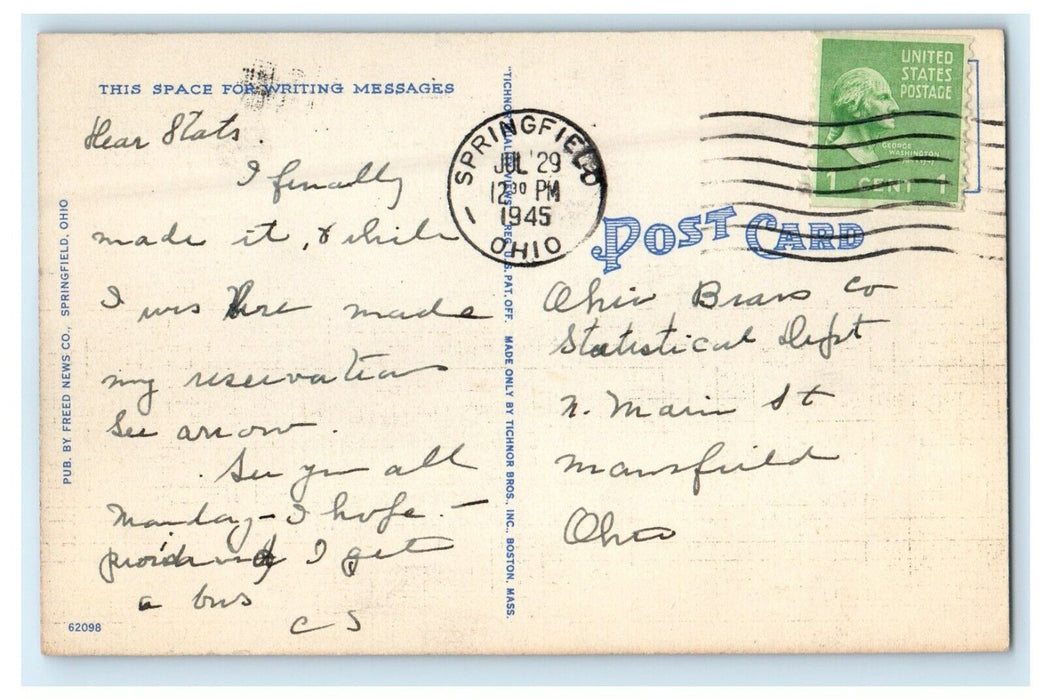 THIS SPACE FOR WRITING MESSAGES
Dear Stats.
I finally
made it, & while
I was here made
my reservation
See arrow.
See you all
Monday - I hope. -
providing I get
a bus
C S
62098
PUB. BY FREED NEWS CO., SPRINGFIELD, OHIO
"TICHNOR QUALITY VIEWS" REG. U.S. PAT. OFF. MADE ONLY BY TICHNOR BROS., INC., BOSTON, MASS.
SPRINGFIELD
JUL 29
12 30 PM
1945
OHIO
1
UNITED
STATES
POSTAGE
GEORGE
WASHINGTON
1 CENT 1
POST CARD
Ohio Brass Co
Statistical Dept
N. Main St
Mansfield
Ohio